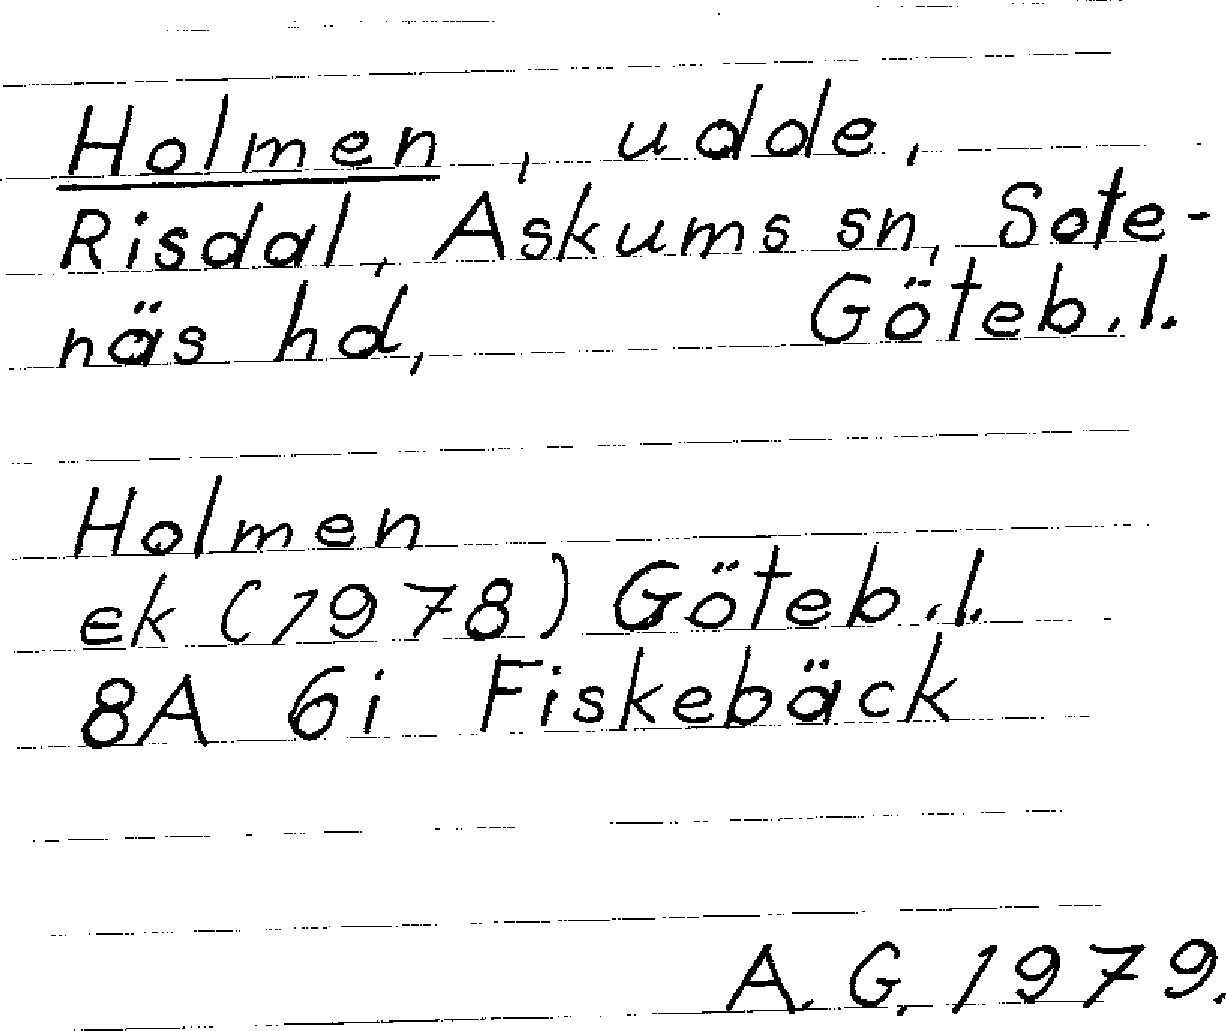 Holmen, udde,
Risdal, Askums sn, Sote-
näs hd, Göteb.l.
Holmen
ek (1978) Göteb.l.
8A 6i Fiskebäck
A.G. 1979.